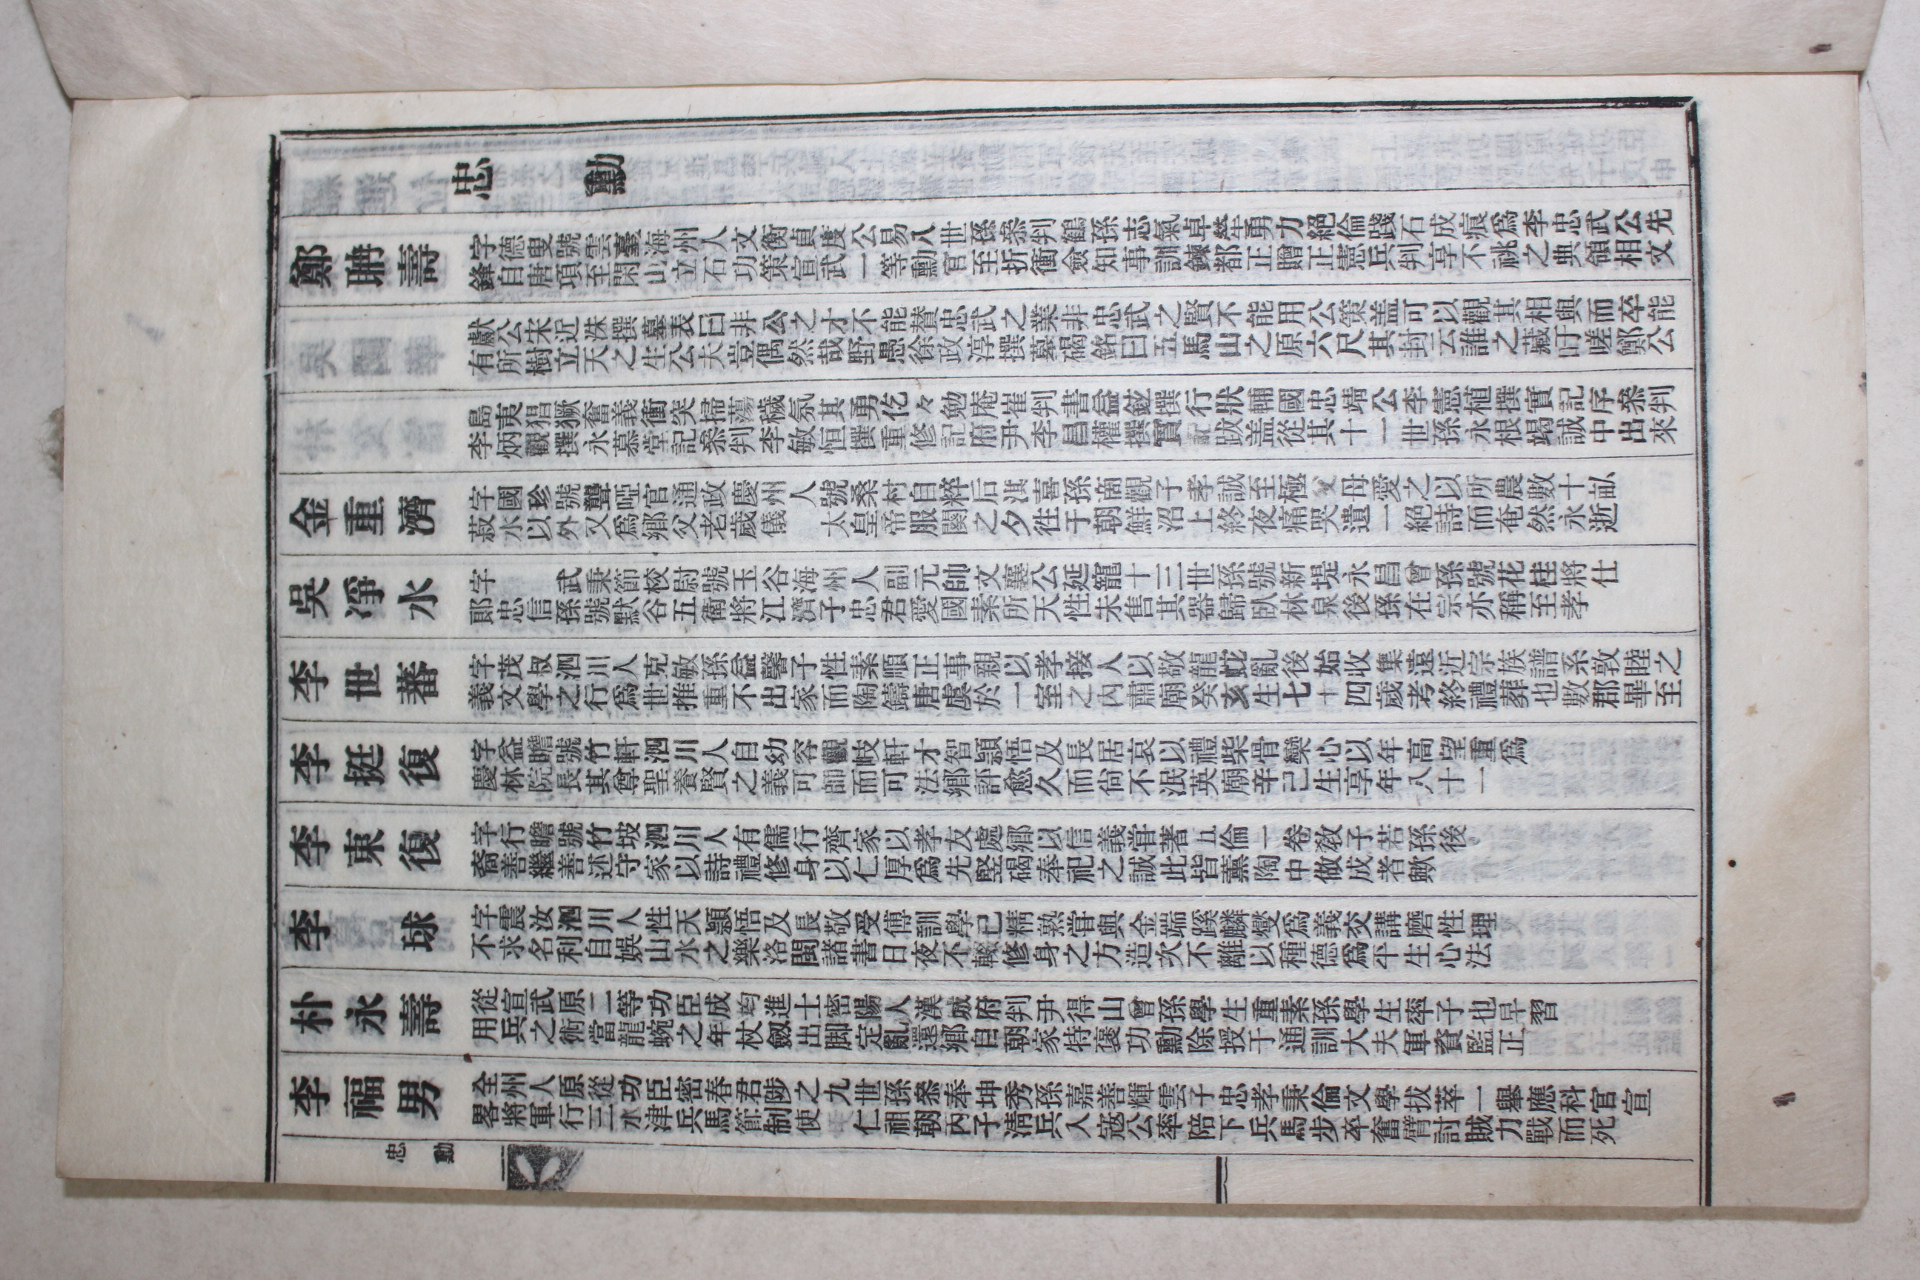 忠勳
鄭聃壽
字德叟號雲臺海州人文衡貞度公易八世孫叅判鶴孫志氣卓犖勇力絕倫踐石成痕爲李忠武公先
鋒自唐項至閑山立石功策宣武一等勳官至折衝僉知事訓鍊都正贈正憲兵判享不祧之典領相文
獻公宋近洙撰墓表曰非公之才不能賛忠武之業非忠武之賢不能用公策盖可以觀其相與而卒能
有所樹立天之生公夫豈偶然哉野愚徐政淳撰墓碣銘曰五馬山之原六尺其封云誰之藏吁嗟鄭公
島夷猖獗奮義衝突掃蕩穢氛其勇仡々勉庵崔判書益鉉撰行狀輔國忠靖公李憲植撰實記序叅判
李炳觀撰永慕堂記叅判李敏恒撰重修記府尹李昌權撰實記跋盖從其十一世孫永根竭誠中出來
金重濟
字國珍號聾啞官通政慶州人號桑村自粹后淇喜孫商觀子孝誠至極父母愛之以所農數十畆
菽水以外又爲鄕父老歲儀 太皇帝服闋之夕徃于朝鮮沼上終夜痛哭遺一絕詩而奄然永逝
吳凈水
字 武秉節校尉號玉谷海州人副元帥文襄公延寵十三世孫號新堤永昌曾孫號花桂將仕
郞忠信孫號默谷五衛將江濟子忠君愛國素所天性未售其器歸臥林泉後孫在宗亦稱至孝
李世蕃
字茂叔泗川人克敏孫益馨子性素順正事親以孝接人以敬龍蛇亂後始收集遠近宗族譜系敦睦之
義文學之行爲世推重不出家而陶鑄唐虞於一室之內肅廟癸亥生七十四歲考終禮葬也數郡畢至
李挺復
字益瞻號竹軒泗川人自幼容觀岐軒才智穎悟及長居哀以禮柴骨欒心以年高望重爲
慶林院長其尊聖養賢之義可師而可法鄕評愈久而尙不泯英廟辛已生享年八十一
李東復
字行瞻號竹坡泗川人有儒行齊家以孝友處鄕以信義甞著五倫一卷敎子若孫後
裔善繼善述守家以詩禮修身以仁厚爲先竪碣奉祀之誠此皆薰陶中做成者歟
李球
字震汝泗川人性天穎悟及長敬受傅訓學已精熟甞與金端蹊麟燮爲義交講磨性理
不求名利自娛山水之樂洛閩諸書日夜不輟修身之方造次不離以種德爲平生心法
朴永壽
從宣武原二等功臣成均進士密陽人漢城府判尹得山曾孫學生重素孫學生率子也早習
用兵之術當龍蜿之年杖劒出脚定亂還鄕自朝家特褒功勳除授于通訓大夫軍資監正
李福男
全州人原從功臣密春君陟之九世孫叅奉坤秀孫嘉善輝雲子忠孝秉倫文學拔萃一擧應科官宣
畧將軍行三水津兵馬節制使 仁祖朝丙子淸兵入寇公率陪下兵馬步卒奮臂討賊力戰而死
忠勳